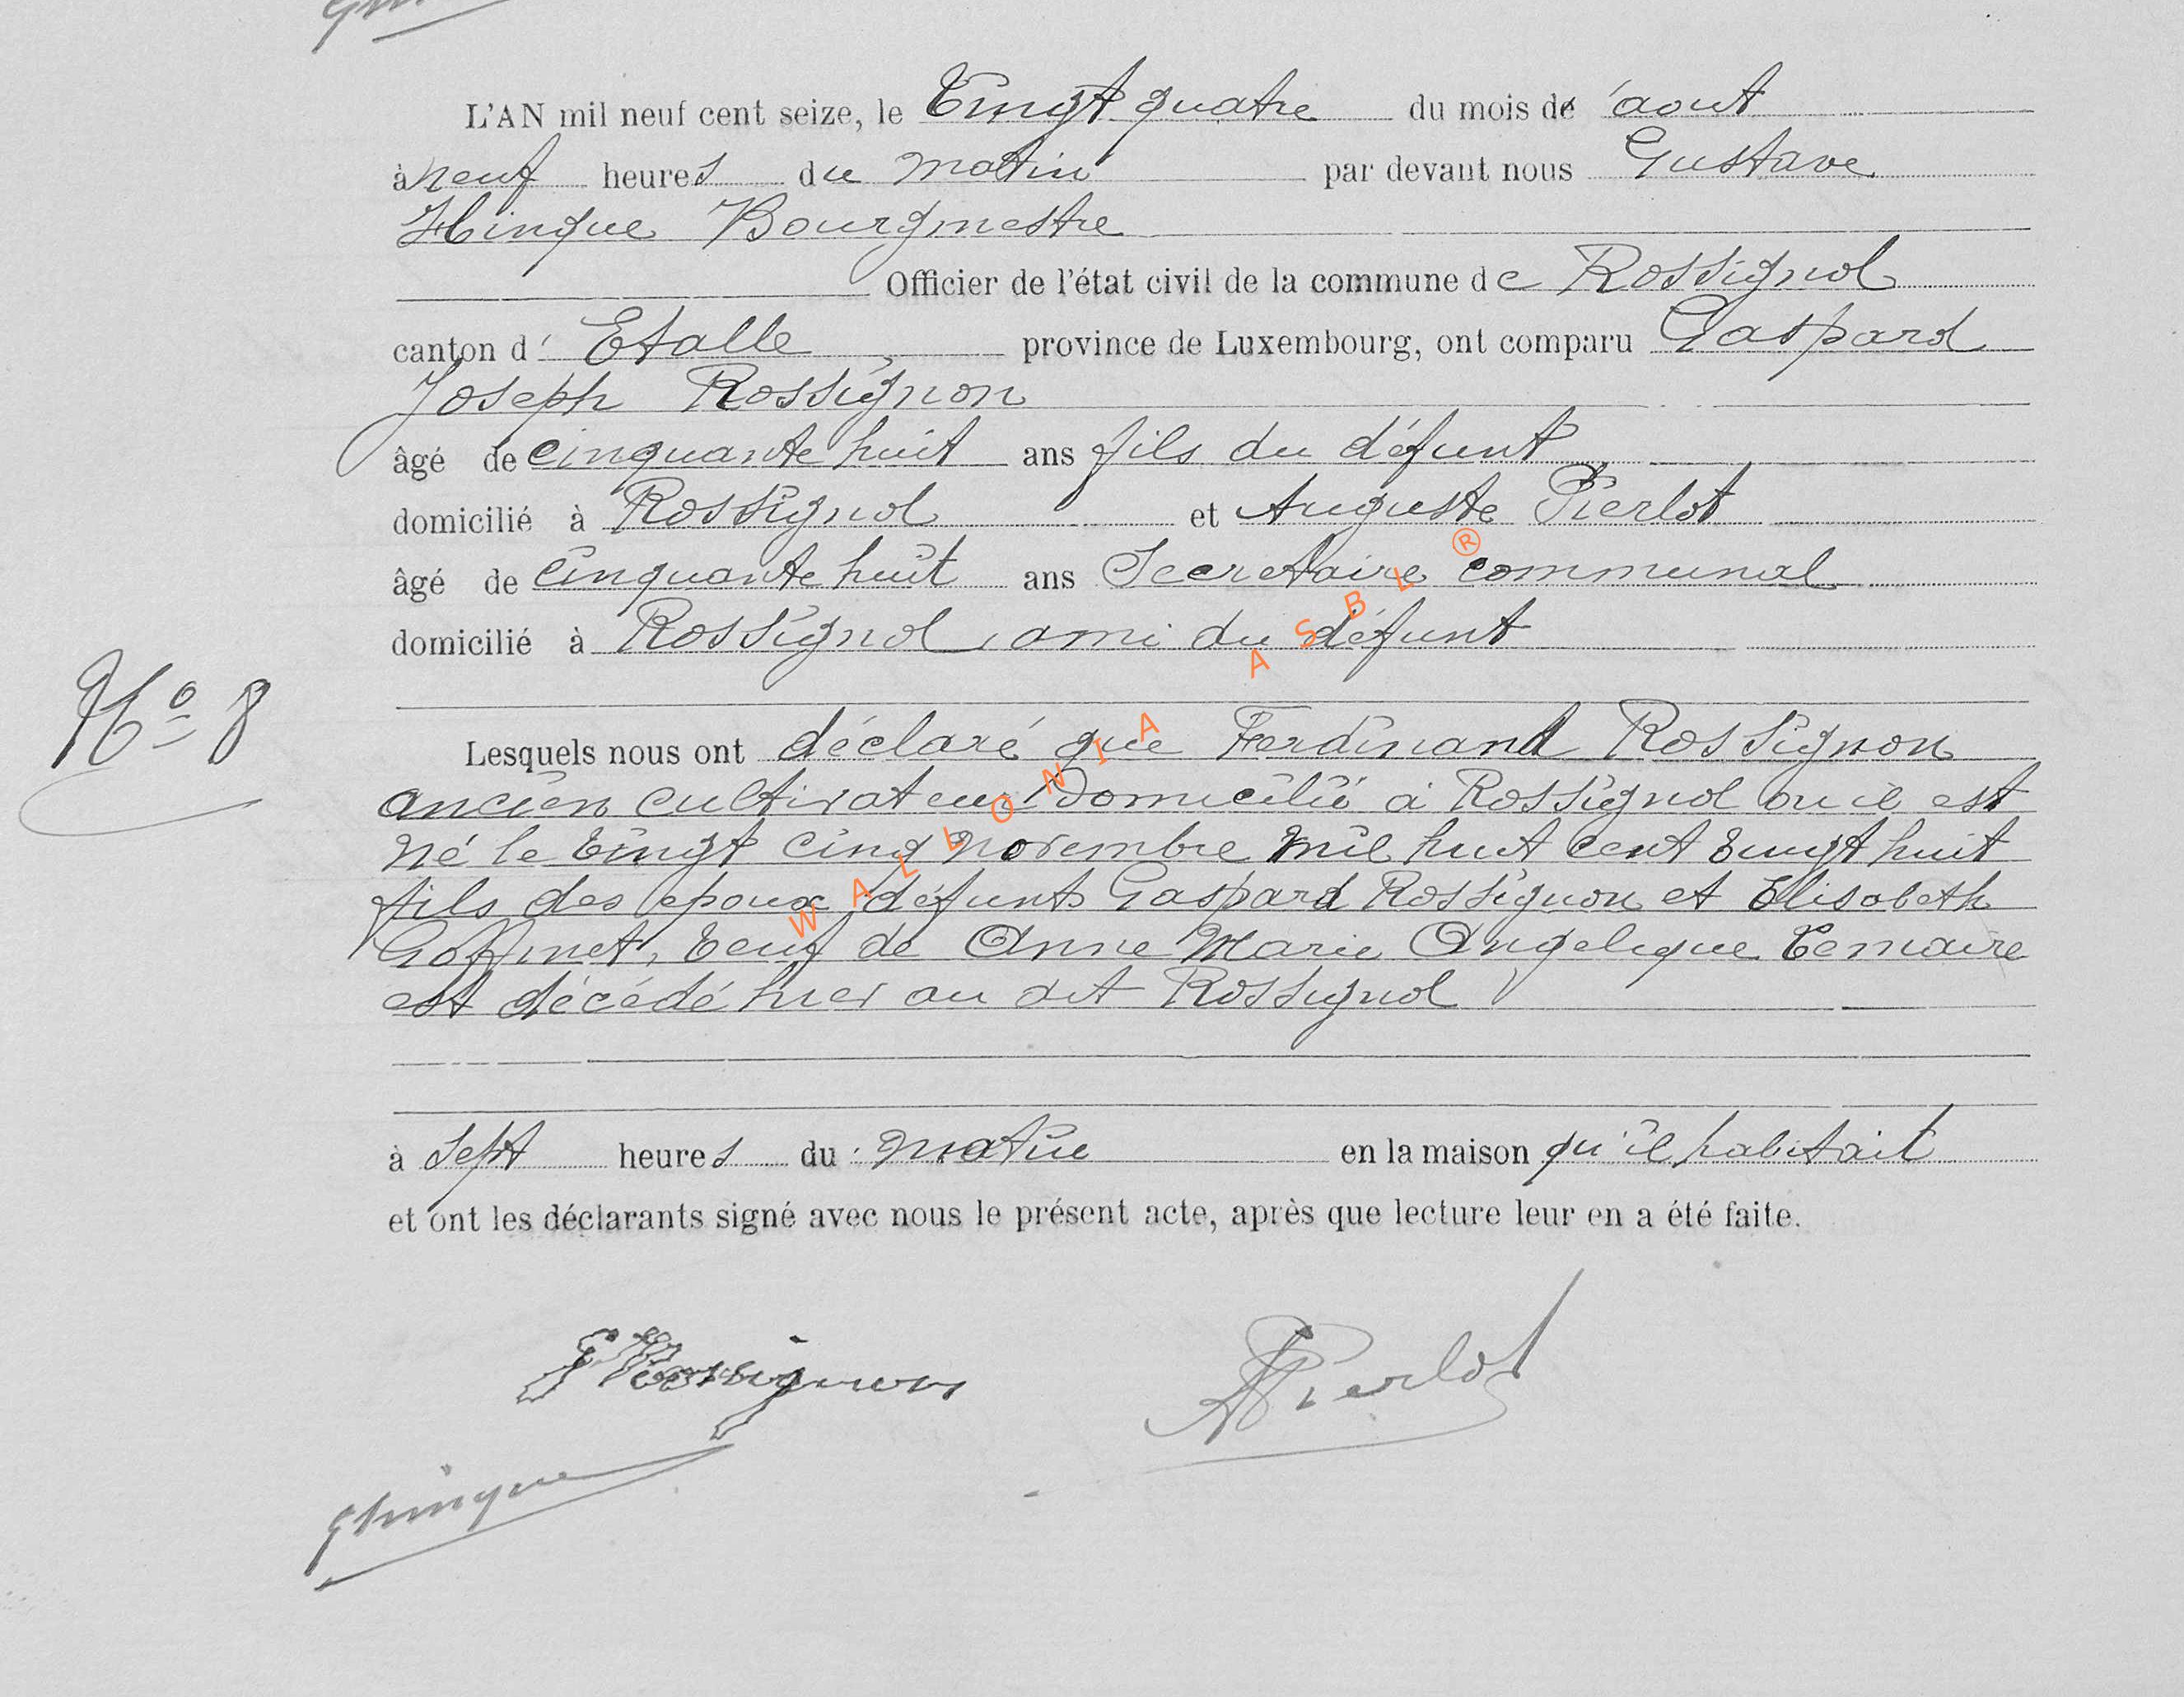 L'AN mil neuf cent seize, le Vingt quatre du mois de aout
à neuf heures du matin par devant nous Gustave
Hinque Bourgmestre
Officier de l'état civil de la commune de Rossignol
canton d' Etalle province de Luxembourg, ont comparu Gaspard
Joseph Rossignon
âgé de cinquante huit ans fils du défunt
domicilié à Rossignol et Auguste Pierlot
âgé de cinquante huit ans Secretaire communal
domicilié à Rossignol, ami du défunt
No 8
Lesquels nous ont déclaré que Ferdinand Rossignon
ancien cultivateur domicilié à Rossignol ou il est
né le vingt cinq novembre mil huit cent vingt huit
fils des epoux défunts Gaspard Rossignon et Elisabeth
Goffinet, veuf de Anne Marie Angelique
est décédé hier au dit Rossignol
à sept heures du matin en la maison qu'il habitait
et ont les déclarants signé avec nous le présent acte, après que lecture leur en a été faite.
G Rossignon
A Pierlot
Ghinque
WALLONIA ASBL ®